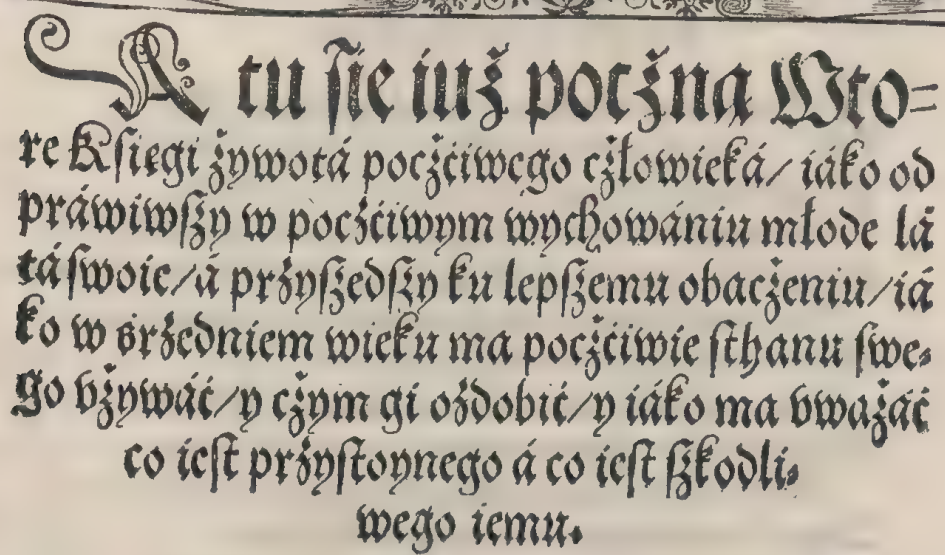 A tu ſie iuż pocżną Wto⸗
re Kſięgi żywotá pocżćiwego cżłowieká/ iáko od
práwiwſży w pocżćiwym wychowániu młode lá
tá ſwoie/ á prżyſżedſży ku lepſżemu obacżeniu/ iá
ko w śrżedniem wieku ma pocżćiwie ſthanu ſwe⸗
go vżywáć/ y cżym gi ożdobić/ y iáko ma vważáć
co ieſt prżyſtoynego á co ieſt ſżkodli⸗
wego iemu.